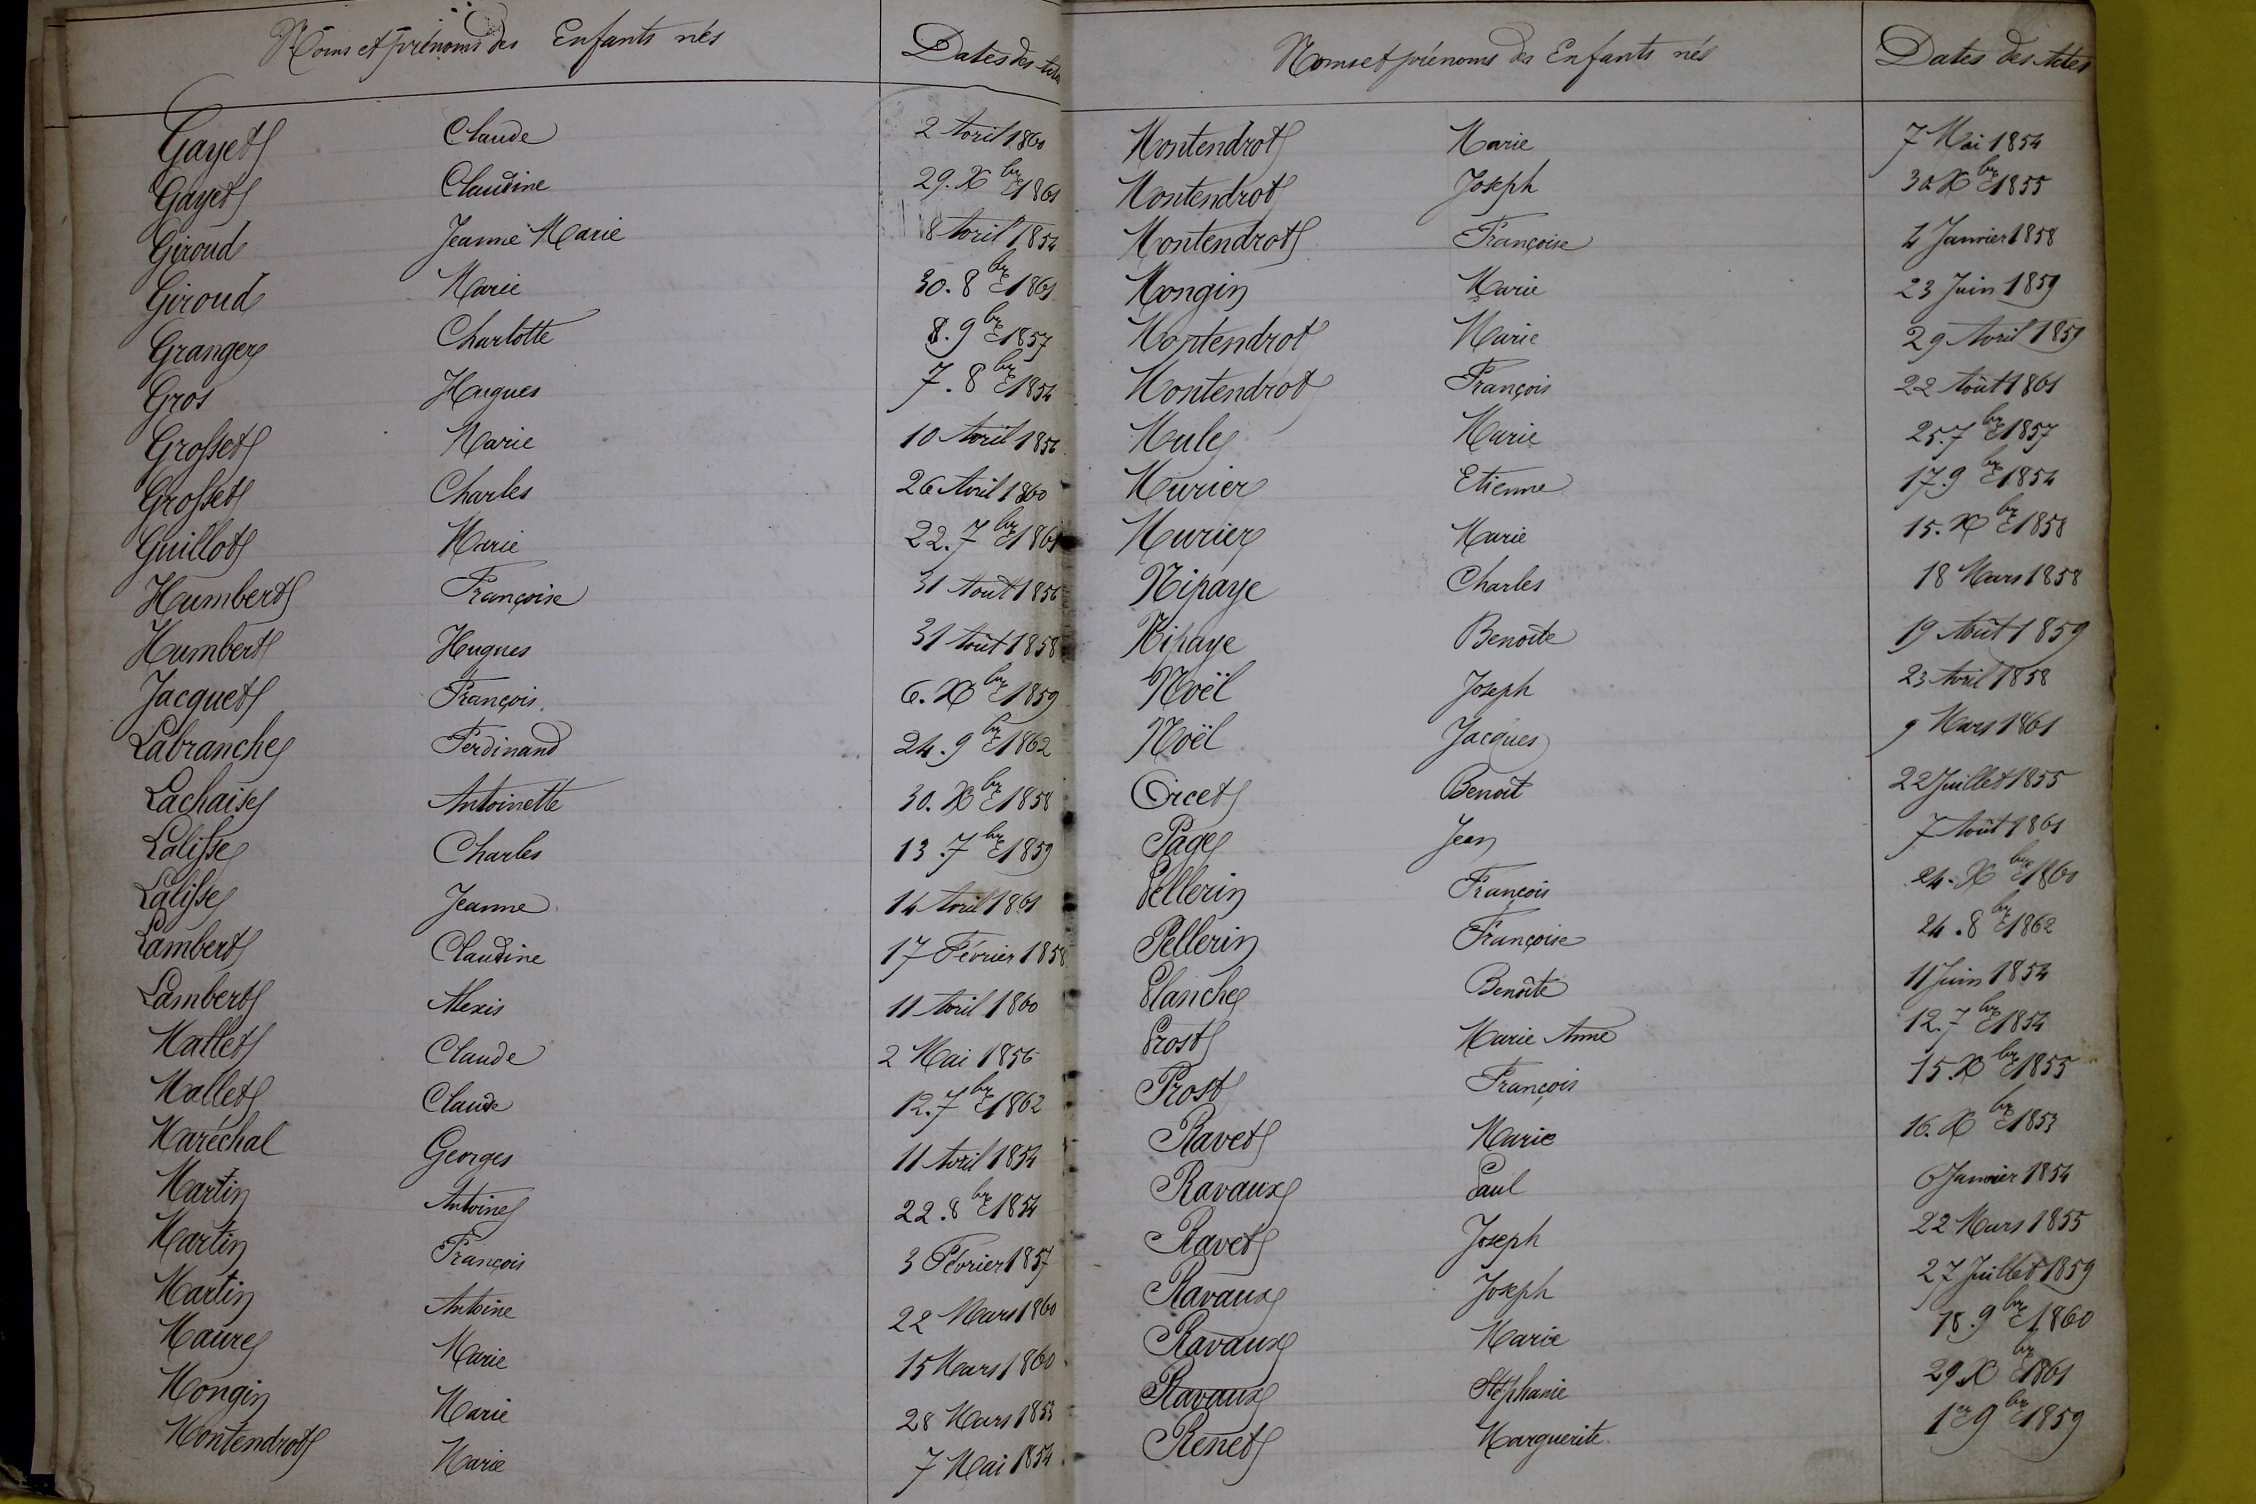 Noms et prénoms des Enfants nés Dates des Actes
Gayet Claude 2 Avril 1860
Gayet Claudine 29. Xbre 1861
Giroud Jeanne Marie 8 Avril 1854
Giroud Marie 30. 8bre 1861
Granger Charlotte 8. 9bre 1857
Gros Hugues 7. 8bre 1854
Grosset Marie 10 Avril 1856
Grosset Charles 26 Avril 1860
Guillot Marie 22. 7bre 1861
Humbert Françoise 31 Août 1856
Humbert Hugues 31 Août 1858
Jacquet François 6. Xbre 1859
Labranche Ferdinand 24. 9bre 1862
Lachaise Antoinette 30. Xbre 1858
Lalisse Charles 13. 7bre 1859
Lalisse Jeanne 14 Avril 1861
Lambert Claudine 17 Février 1858
Lambert Alexis 11 Avril 1860
Mallet Claude 2 Mai 1856
Mallet Claude 12. 7bre 1862
Maréchal Georges 11 Avril 1854
Martin Antoine 22. 8bre 1854
Martin François 3 Février 1857
Martin Antoine 22 Mars 1860
Maure Marie 15 Mars 1860
Mongin Marie 28 Mars 1853
Montendrot Marie 7 Mai 1854
Noms et prénoms des Enfants nés Dates des Actes
Montendrot Marie 7 Mai 1854
Montendrot Joseph 30 Xbre 1855
Montendrot Françoise 2 Janvier 1858
Mongin Marie 23 Juin 1859
Montendrot Marie 29 Avril 1859
Montendrot François 22 Août 1861
Mule Marie 25. 7bre 1857
Murier Etienne 17. 9bre 1854
Murier Marie 15. Xbre 1858
Nipaye Charles 18 Mars 1858
Nipaye Benoîte 19 Août 1859
Noël Joseph 23 Avril 1858
Noël Jacques 9 Mars 1861
Orcet Benoît 22 Juillet 1855
Page Jean 7 Août 1861
Pellerin François 24. Xbre 1860
Pellerin Françoise 24. 8bre 1862
Planche Benoîte 11 Juin 1854
Prost Marie Anne 12. 7bre 1854
Prost François 15. Xbre 1855
Ravet Marie 16. Xbre 1853
Ravaux Paul 6 Janvier 1854
Ravet Joseph 22 Mars 1855
Ravaux Joseph 27 Juillet 1859
Ravaux Marie 18. 9bre 1860
Ravaux Stéphanie 29 Xbre 1861
Renet Marguerite 1er 9bre 1859